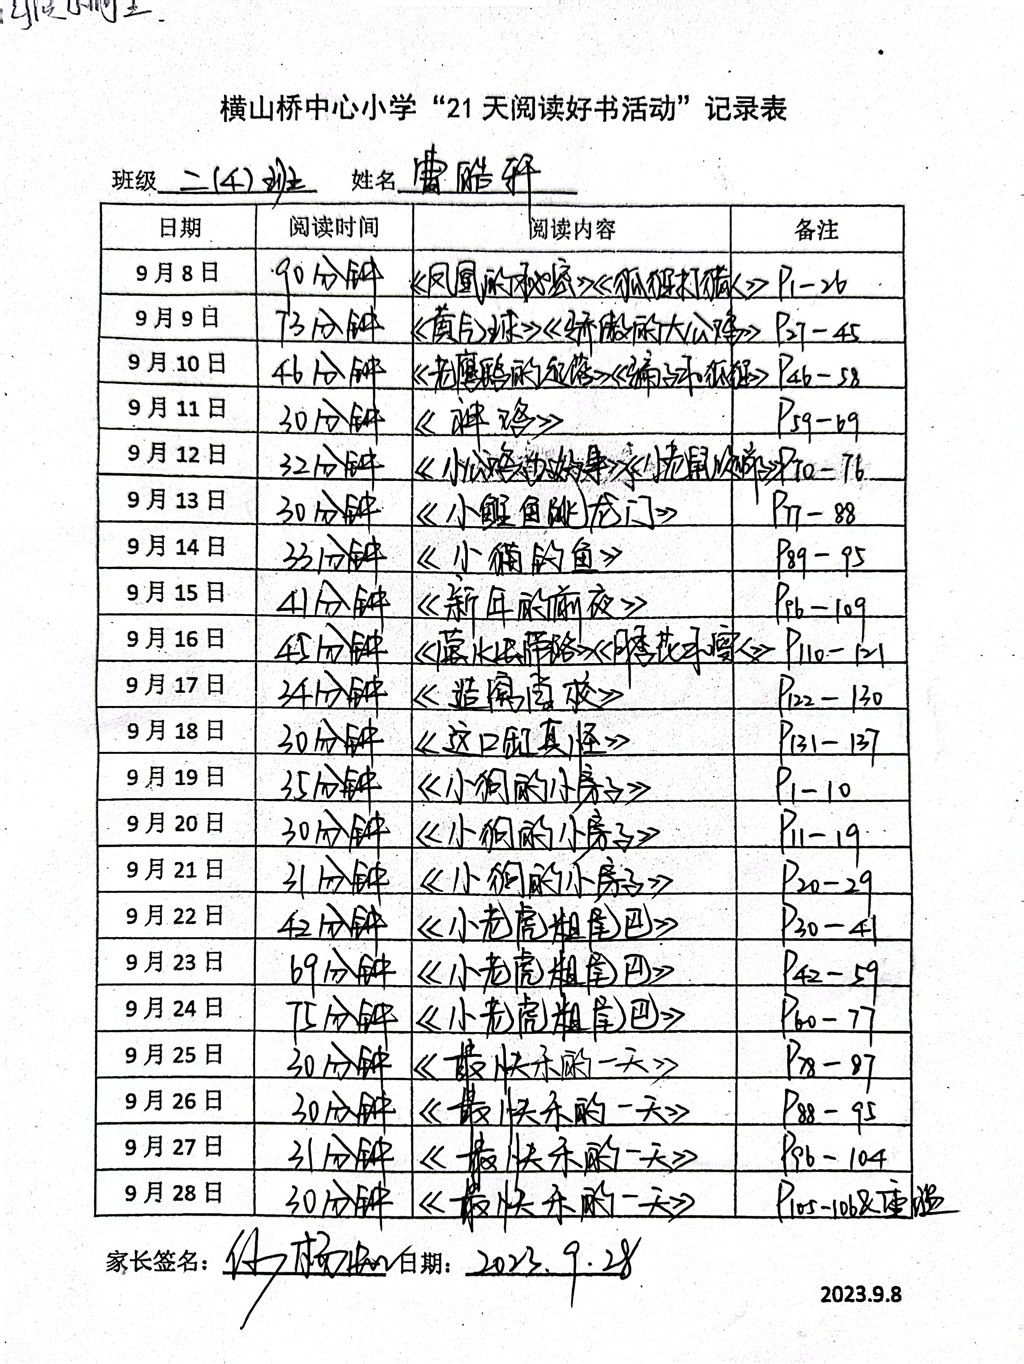 横山桥中心小学“21天阅读好书活动”记录表
班级 二(4)班 姓名 曹皓轩
日期 阅读时间 阅读内容 备注
9月8日 90分钟 《凤凰的秘密》《狐狸打猎人》 P1-26
9月9日 73分钟 《骄傲的大公鸡》 P27-45
9月10日 46分钟 P46-58
9月11日 30分钟 《神路》 P59-69
9月12日 32分钟 P70-76
9月13日 30分钟 《小鲤鱼跳龙门》 P77-88
9月14日 33分钟 《小猫钓鱼》 P89-95
9月15日 41分钟 《新年的前夜》 P96-109
9月16日 45分钟 P110-121
9月17日 34分钟 P122-130
9月18日 30分钟 《这口缸真怪》 P131-137
9月19日 35分钟 《小狗的小房子》 P1-10
9月20日 30分钟 《小狗的小房子》 P11-19
9月21日 31分钟 《小狗的小房子》 P20-29
9月22日 42分钟 《小老虎粗尾巴》 P30-41
9月23日 69分钟 《小老虎粗尾巴》 P42-59
9月24日 75分钟 《小老虎粗尾巴》 P60-77
9月25日 30分钟 《最快乐的一天》 P78-87
9月26日 30分钟 《最快乐的一天》 P88-95
9月27日 31分钟 《最快乐的一天》 P96-104
9月28日 30分钟 《最快乐的一天》 P105-106&重温
家长签名: 日期: 2023.9.28
2023.9.8